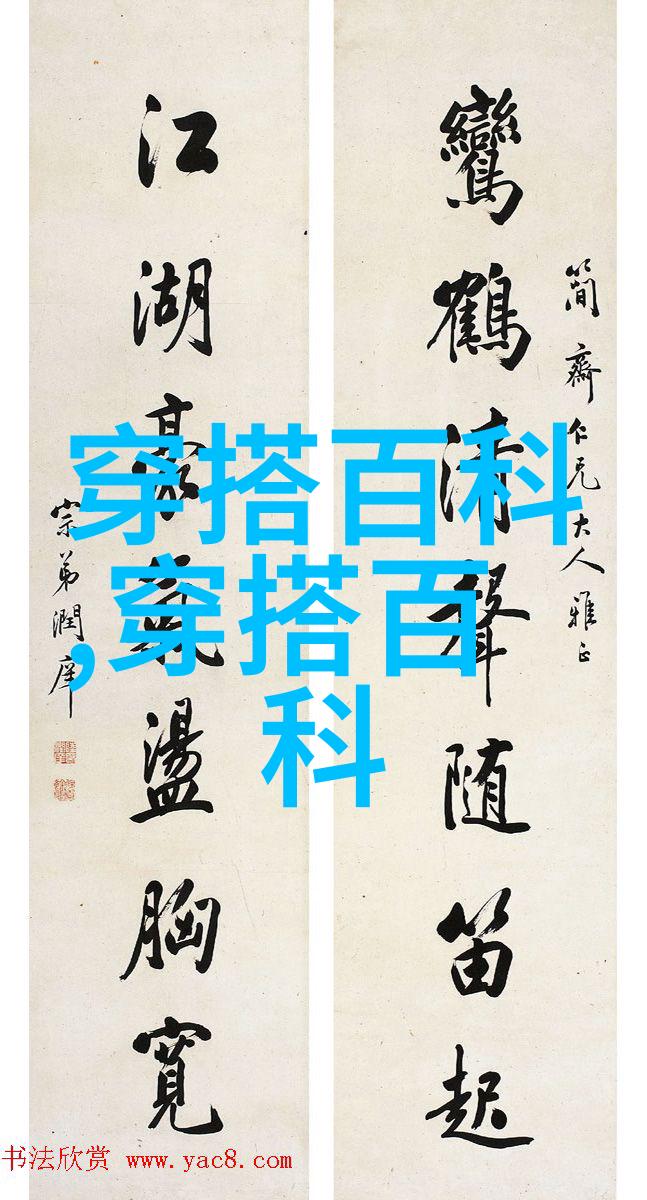 鸞鶴清聲随笛起
簡齋仁兄大人雅正
江湖豪氣盪胸寬
宗弟潤庠
穿搭百科
,穿搭百
科
书法欣赏 www.yac8.com